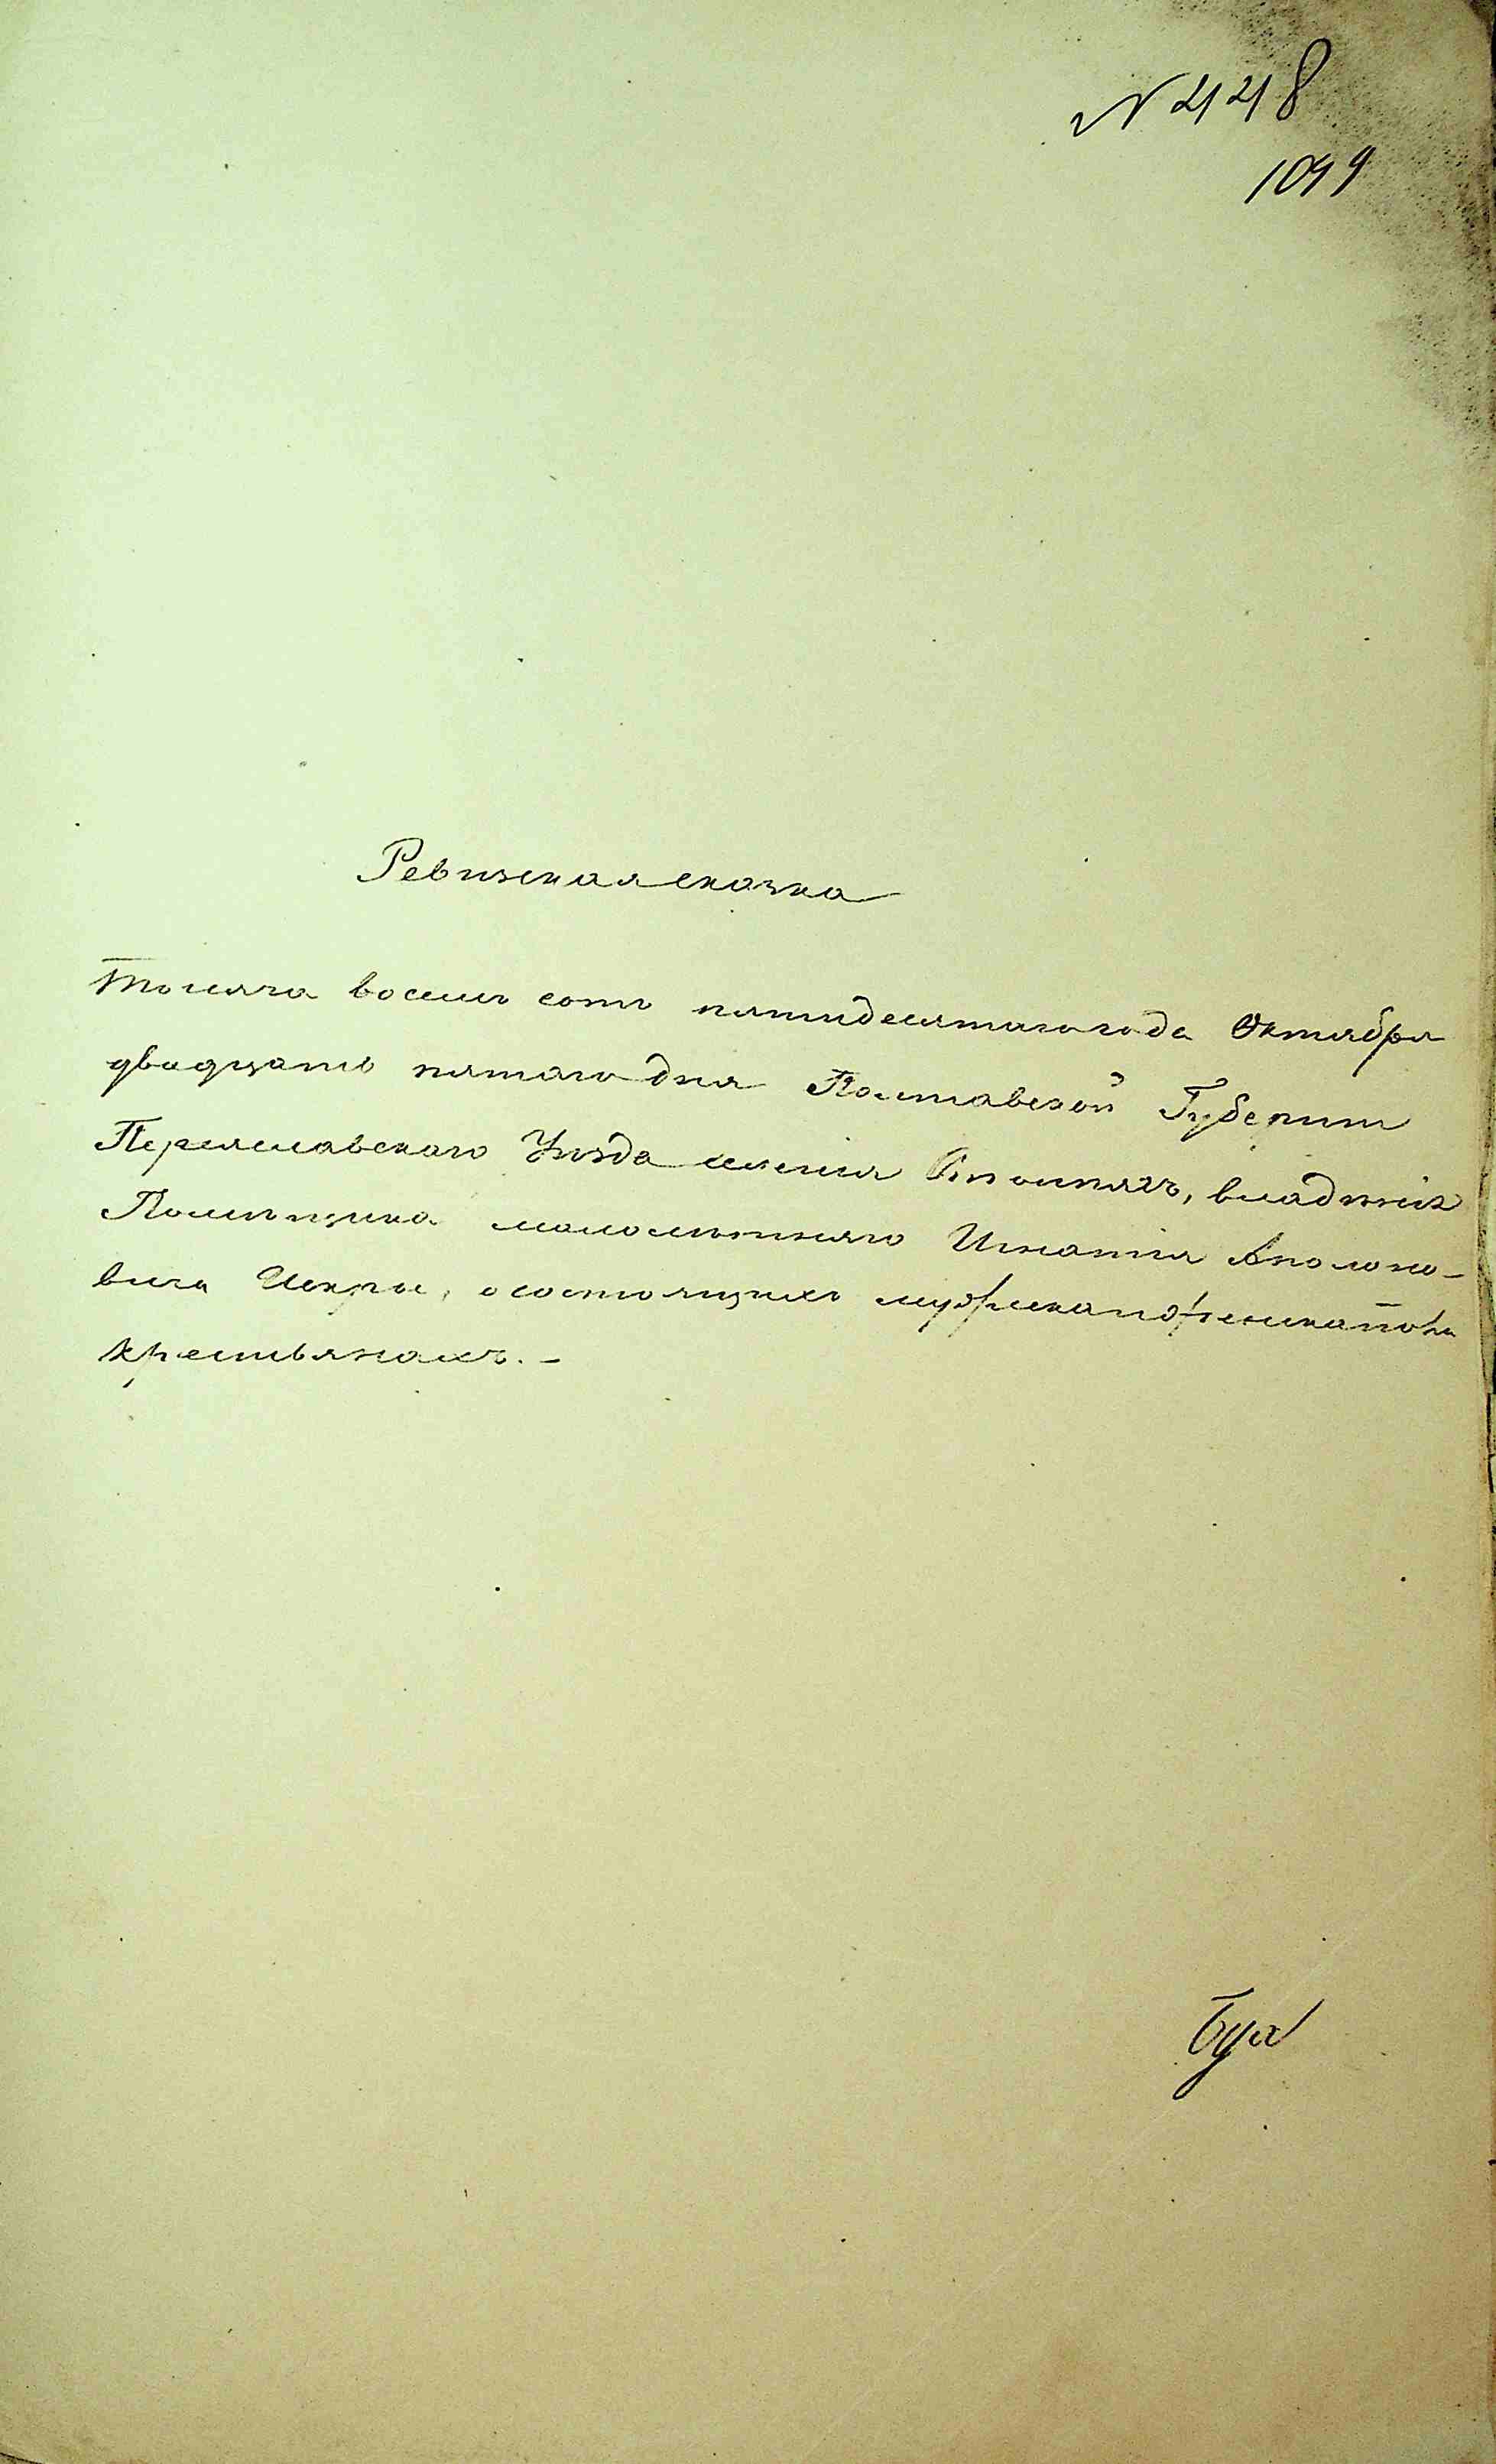 N 448
1099
Ревизская сказка
Тысяча восемь сотъ пятидесятаго года Октября
двадцать пятаго дня Полтавской Губерніи
Переяславскаго Уѣзда имѣнія владѣнія
Помѣщика малолѣтняго Игнатія Аполоно-
вича Искры, о состоящихъ мужеска и женска пола
крестьянахъ. –